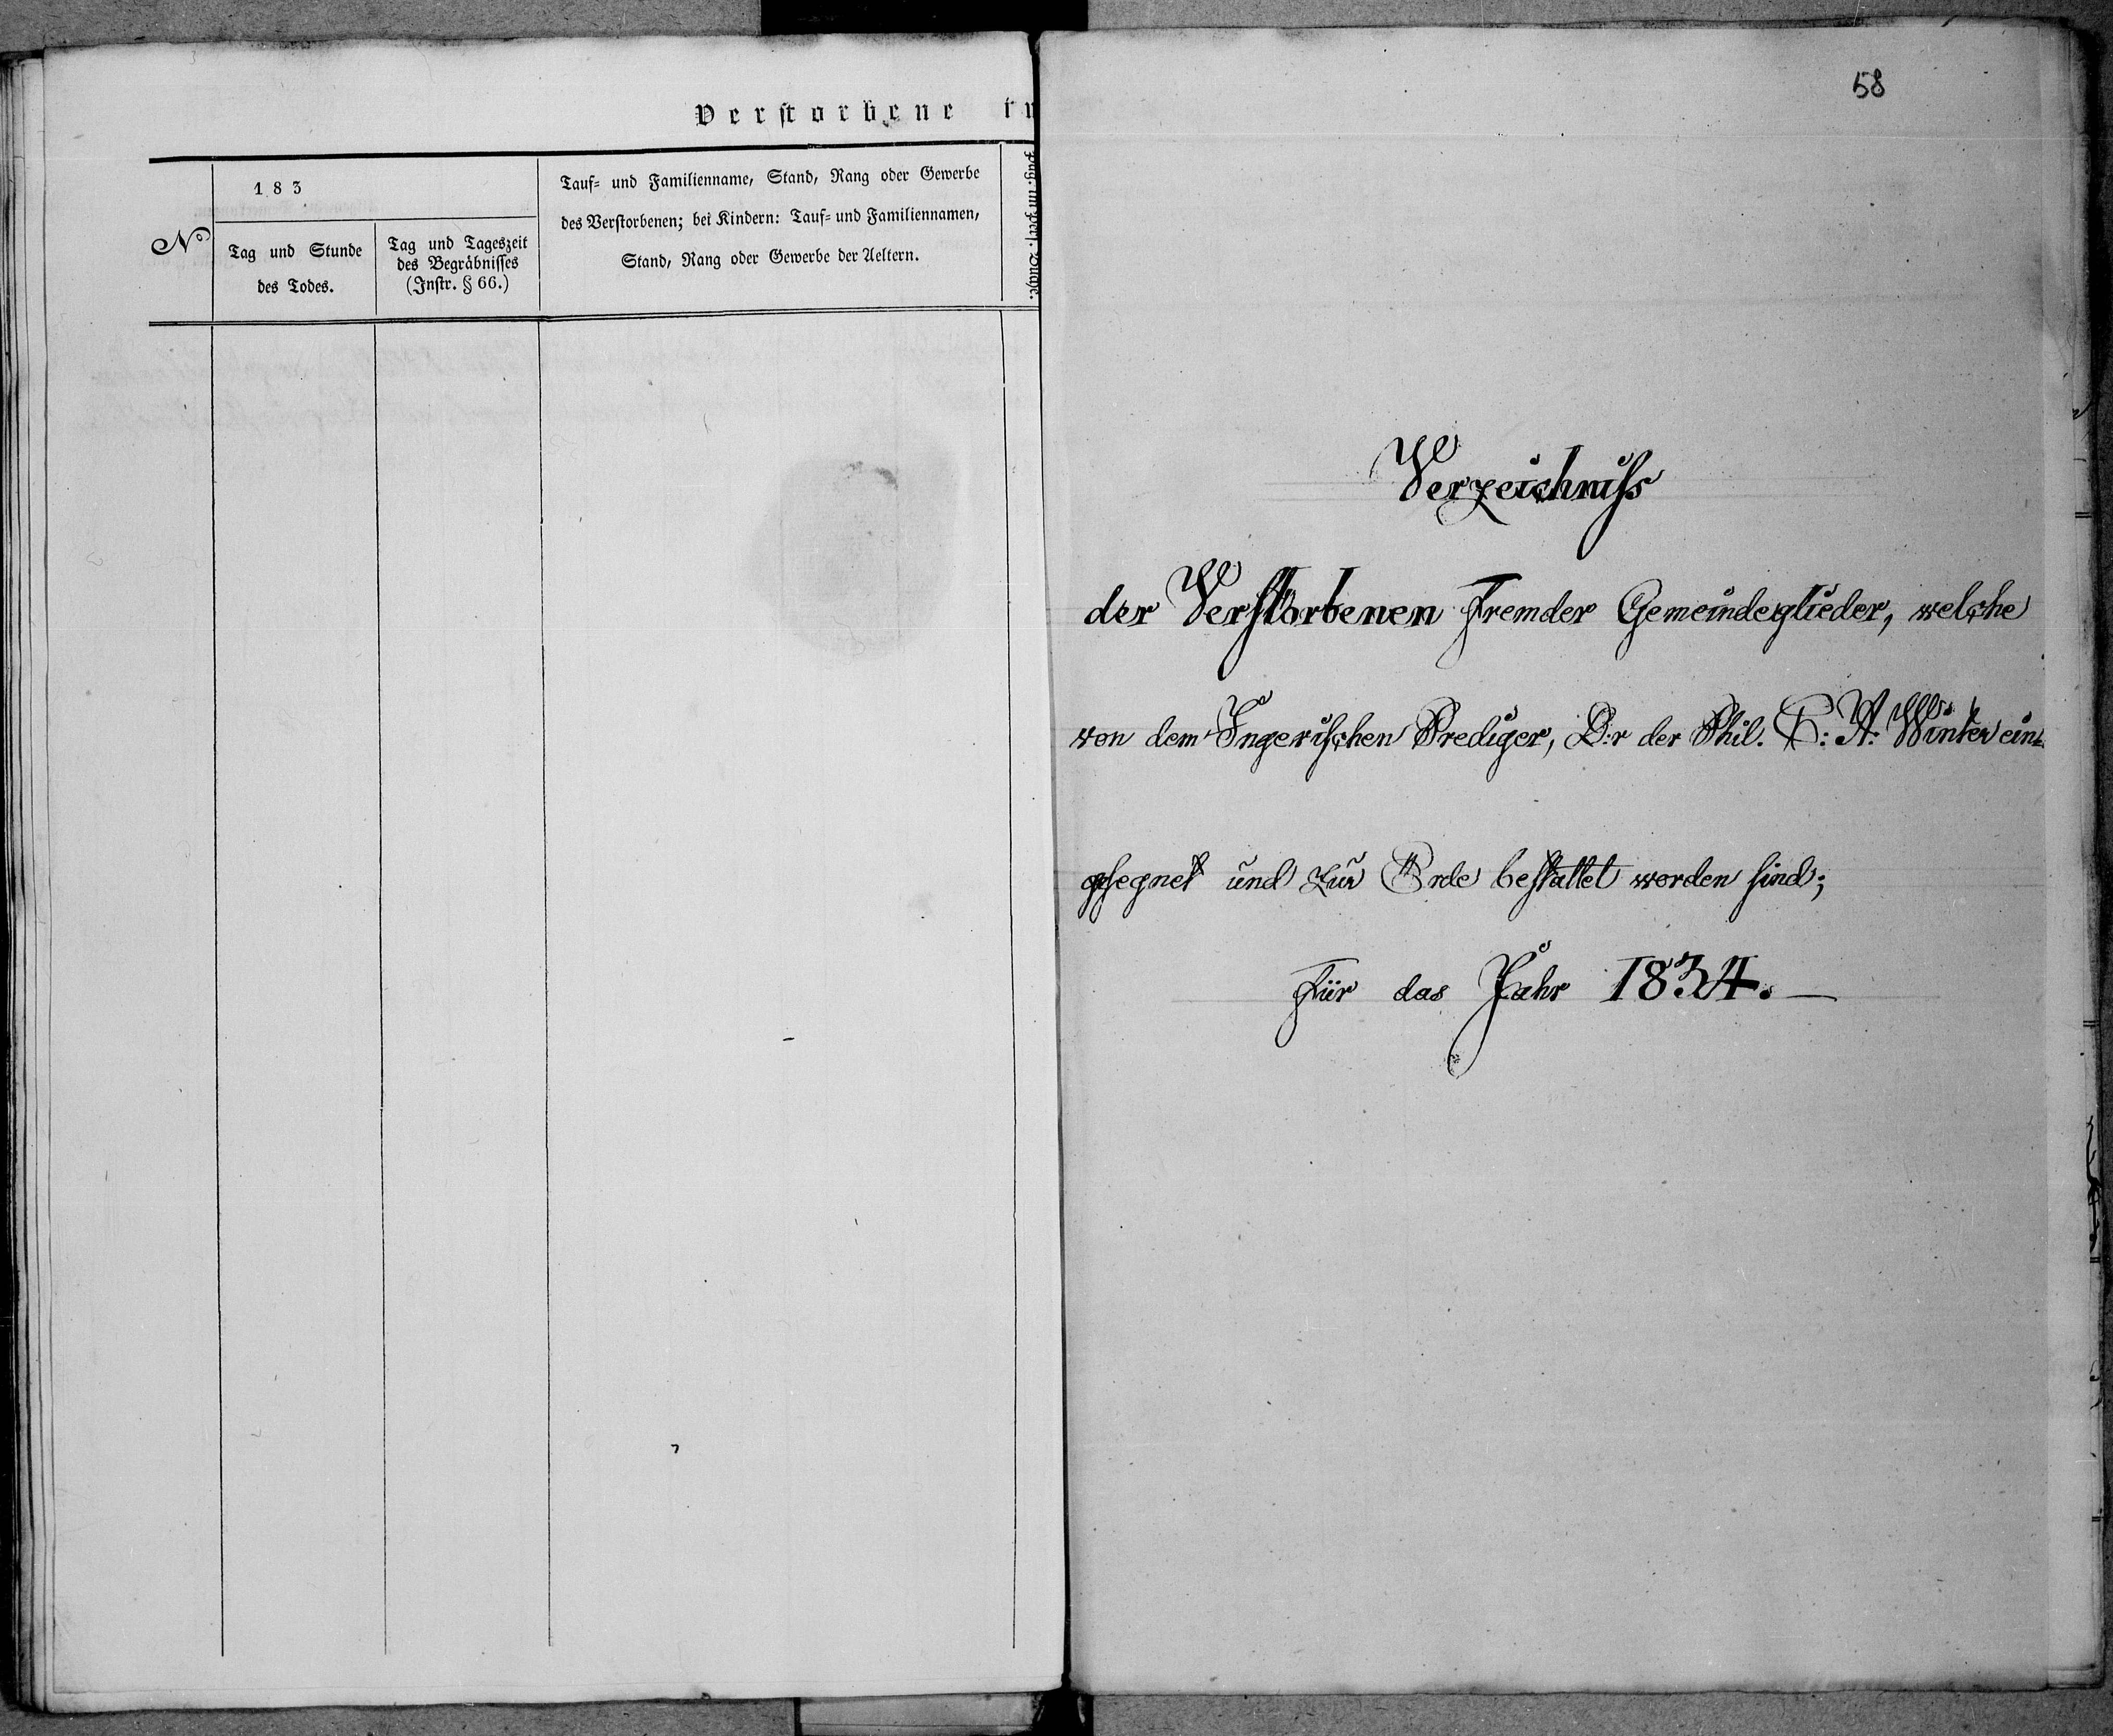 Verstorbene in
183
Tauf= und Familienname, Stand, Rang oder Gewerbe
des Verstorbenen; bei Kindern: Tauf= und Familiennamen,
Stand, Rang oder Gewerbe der Aeltern.
No
Tag und Stunde
des Todes.
Tag und Tageszeit
des Begräbnisses
(Instr. § 66.)
58
Verzeichniss
der Verstorbenen fremder Gemeindeglieder, welche
von dem Ingerischen Prediger, D:r der Phil. A: Winter ein=
gesegnet und zur Erde bestattet worden sind;
für das Jahr 1834. —